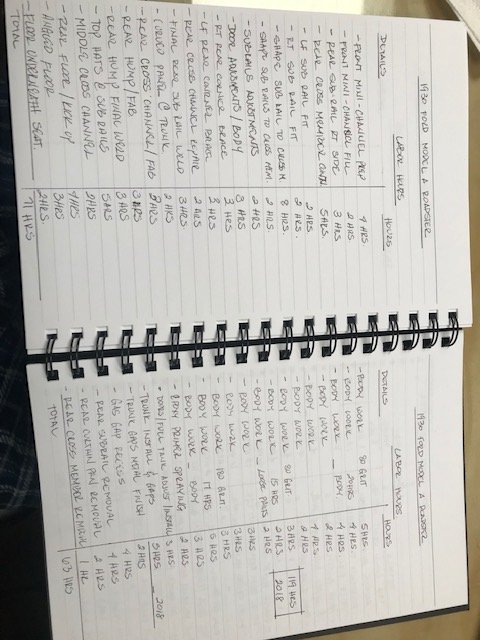 1930 FORD MODEL A ROADSTER
LABOR HOURS
DETAILS HOURS
- FRONT MINI-CHANNEL PREP 4 HRS
- FRONT MINI-CHANNEL FILL 2 HRS
- REAR SUB RAIL RT SIDE 3 HRS
- REAR CROSS MEMBER 5 HRS
- LF SUB RAIL FIT 2 HRS
- RT SUB RAIL FIT 2 HRS.
- SHAPE SUB RAIL TO CROSS M. 8 HRS.
- SHAPE SUB RAILS TO CROSS MEM 2 HRS
- SUBRAILS ADJUSTMENTS 2 HRS
- DOOR ADJUSTMENTS / BODY 3 HRS
- RT REAR CORNER BRACE 3 HRS
- LF REAR CORNER BRACE 2 HRS
- REAR CROSS CHANNEL REPAIR 3 HRS
- FINAL REAR SUB RAIL WELD 3 HRS
- CURVED PANEL @ TRUNK 2 HRS
- REAR CROSS CHANNEL / FAB 8 HRS
- REAR HUMP / FAB 3 HRS
- REAR HUMP FINAL WELD 3 HRS
- TOP HATS @ SUB RAILS 5 HRS
- MIDDLE CROSS CHANNEL 2 HRS
- REAR FLOOR / KICK-UP 4 HRS
- HINGED FLOOR 3 HRS
- FLOOR UNDERNEATH SEAT. 2 HRS
TOTAL 71 HRS
1930 FORD MODEL A ROADSTER
LABOR HOURS
DETAILS HOURS
- BODY WORK 80 GRIT 5 HRS
- BODY WORK 4 HRS
- BODY WORK - BODY 4 HRS
- BODY WORK 2 HRS
- BODY WORK 4 HRS
- BODY WORK 2 HRS
- BODY WORK 80 GRIT 3 HRS 119 HRS
- BODY WORK 15 HRS 2 HRS 2018
- BODY WORK - LOOSE PARTS 2 HRS
- BODY WORK 3 HRS
- BODY WORK 3 HRS
- BODY WORK 180 GRIT. 5 HRS
- BODY WORK 17 HRS 3 HRS
- BODY WORK - BODY 2 HRS
- EPOXY PRIMER SPRAYING 3 HRS
- DOORS / FUEL TANK ADJUST / INSTALL 5 HRS - 2018
- TRUNK INSTALL & GAPS 2 HRS
- TRUNK GAPS METAL FINISH 4 HRS
- GAS GAP 4 HRS
- REAR SUBRAIL REMOVAL 2 HRS
- REAR CURTAIN PAN REMOVAL 1 HR
- REAR CROSS MEMBER
TOTAL 63 HRS